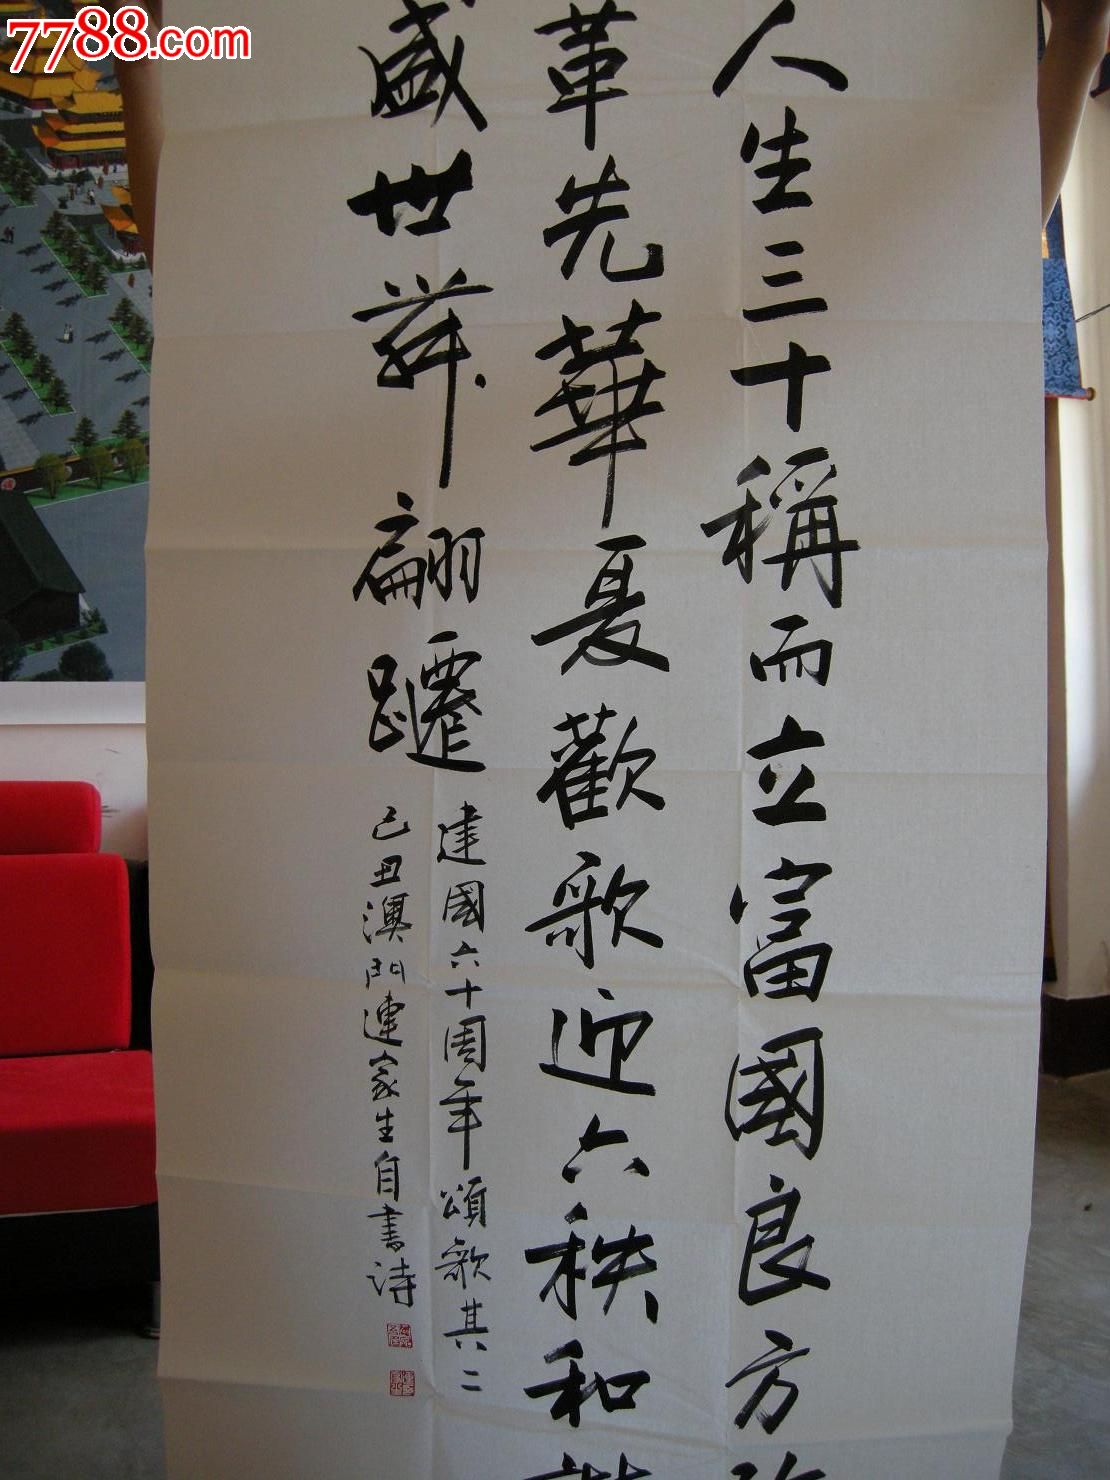 7788.com
人生三十稱而立富國良方改
革先華夏歡歌迎六秩和諧
盛世舞翩躚
建國六十周年頌歌其二
己丑澳門連家生自書詩